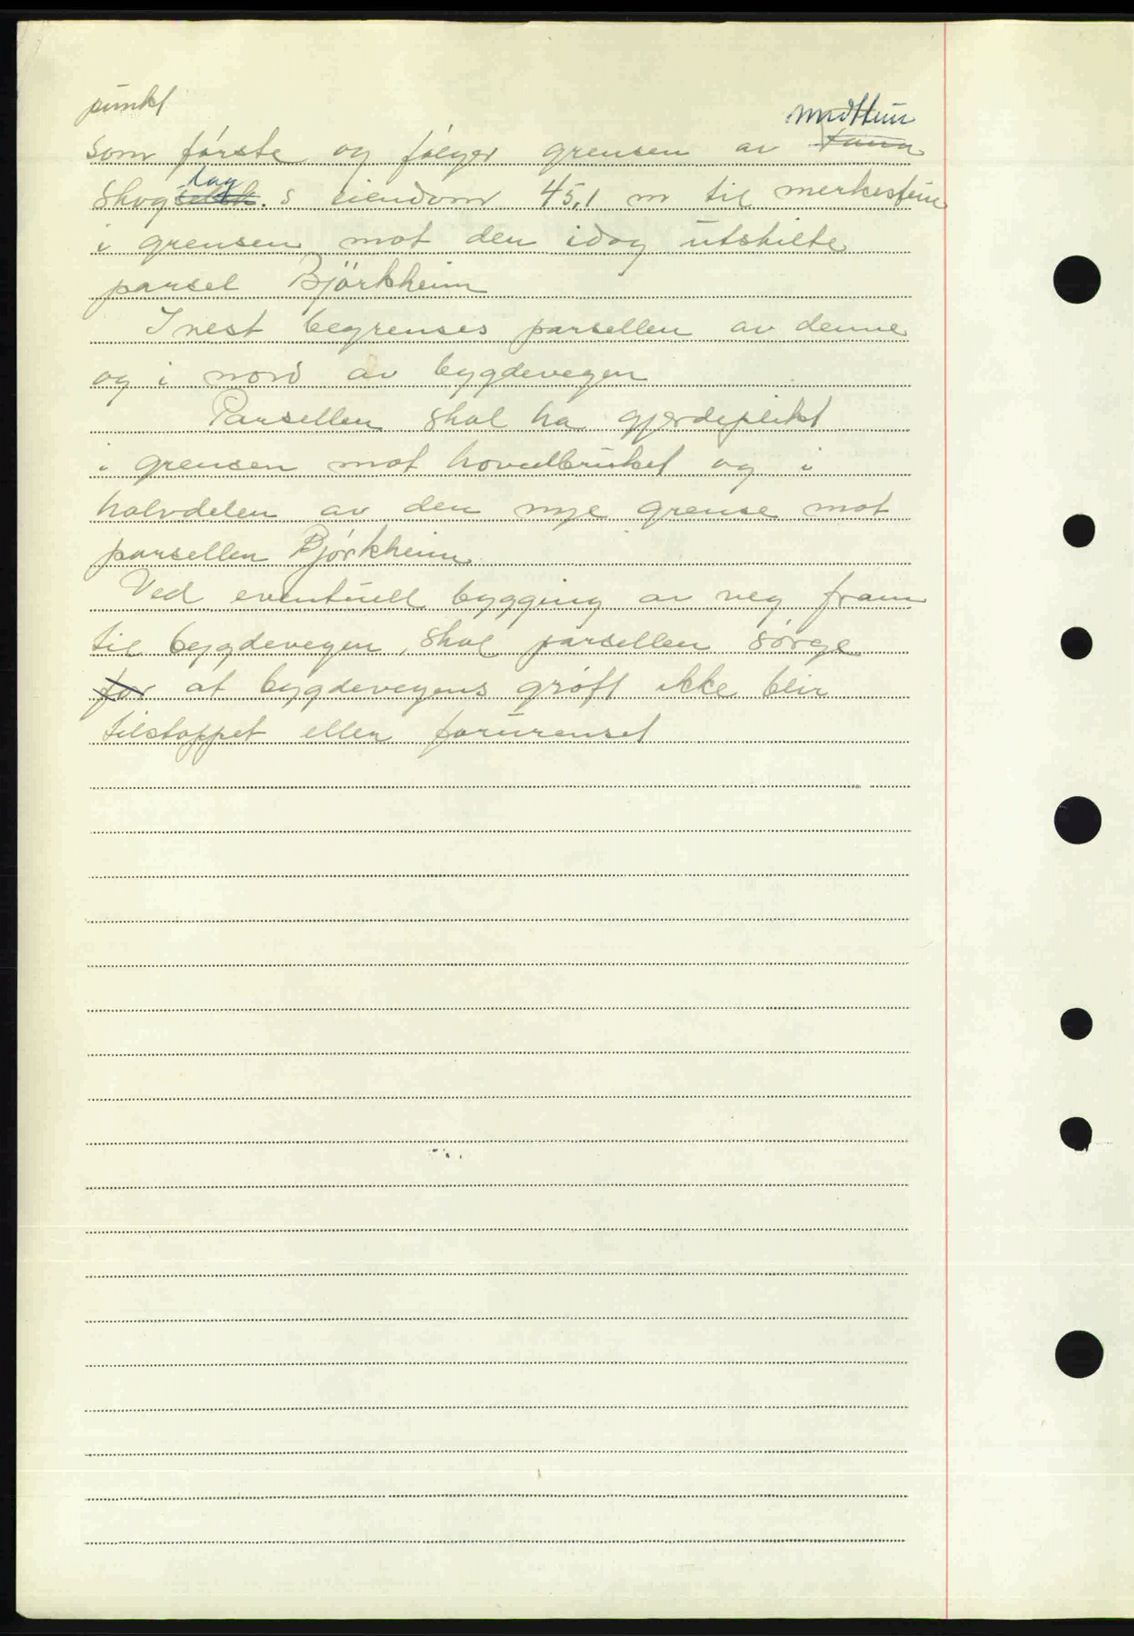 punkt
som første og følger grensen av Fana Midttun
Skogselsk. lag s eiendom 45,1 m til merkestein
i grensen mot den idag utskilte
parsel Björkheim
I vest begrenses parsellen av denne
og i nord av bygdevegen
Parsellen skal ha gjerdeplikt
i grensen mot hovedbruket og i
halvdelen av den nye grense mot
parsellen Bjørkheim
Ved eventuell bygging av veg fram
til bygdevegen, skal parsellen sørge
for at bygdevegens grøft ikke blir
tilstoppet eller forurenset